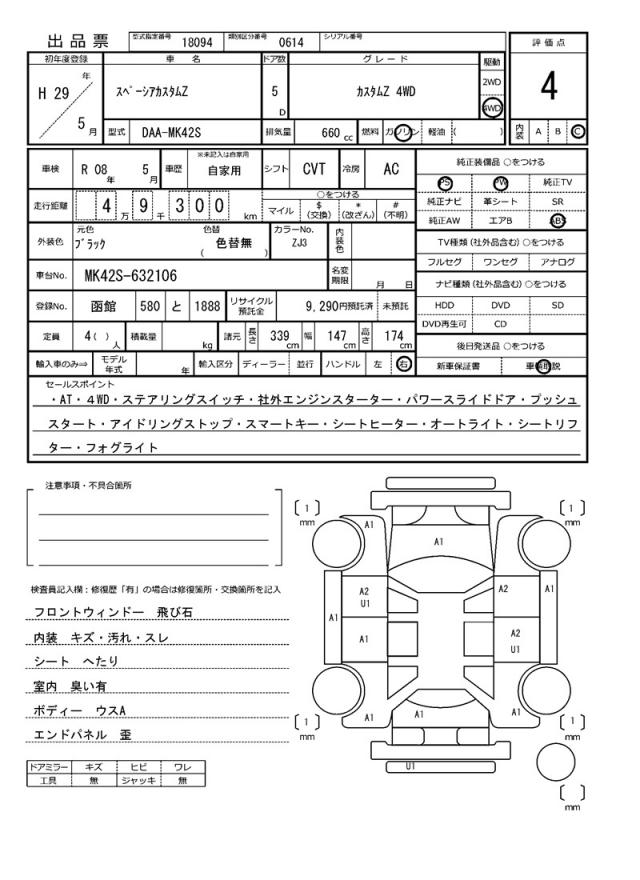 出品票 型式指定番号 18094 類別区分番号 0614 シリアル番号
評価点
4
初年度登録 車名 ドア数 グレード 駆動
H 29 年 5 月 スペーシアカスタムZ 5 D カスタムZ 4WD 2WD 4WD
型式 DAA-MK42S 排気量 660 cc 燃料 ガソリン 軽油 ( ) 内装 A B C
車検 R 08 年 5 月 車歴 ※未記入は自家用 自家用 シフト CVT 冷房 AC
走行距離 4 万 9 千 3 0 0 km ○をつける マイル $ (交換) * (改ざん) # (不明)
外装色 元色 ブラック 色替 ( 色替無 ) カラーNo. ZJ3 内装色
車台No. MK42S-632106 名変期限 月 日
登録No. 函館 580 と 1888 リサイクル預託金 9,290円預託済 未預託
定員 4( ) 人 積載量 kg 諸元 長さ 339 cm 幅 147 cm 高さ 174 cm
輸入車のみ⇒ モデル年式 年 輸入区分 ディーラー 並行 ハンドル 左 右
純正装備品 ○をつける
PS PW 純正TV
純正ナビ 革シート SR
純正AW エアB ABS
TV種類 (社外品含む) ○をつける
フルセグ ワンセグ アナログ
ナビ種類 (社外品含む) ○をつける
HDD DVD SD
DVD再生可 CD
後日発送品 ○をつける
新車保証書
セールスポイント
・AT・4WD・ステアリングスイッチ・社外エンジンスターター・パワースライドドア・プッシュ
スタート・アイドリングストップ・スマートキー・シートヒーター・オートライト・シートリフ
ター・フォグライト
注意事項・不具合箇所
検査員記入欄：修復歴「有」の場合は修復箇所・交換箇所を記入
フロントウィンドー 飛び石
内装 キズ・汚れ・スレ
シート へたり
室内 臭い有
ボディー ウスA
エンドパネル 歪
ドアミラー キズ ヒビ ワレ
工具 無 ジャッキ 無
〔 1 〕 mm 〔 1 〕 mm
A1
A1
A2 U1 A2 A1
A1 A1 A2 U1
A1 A1 A1
〔 1 〕 mm 〔 1 〕 mm
U1
〔 〕 mm